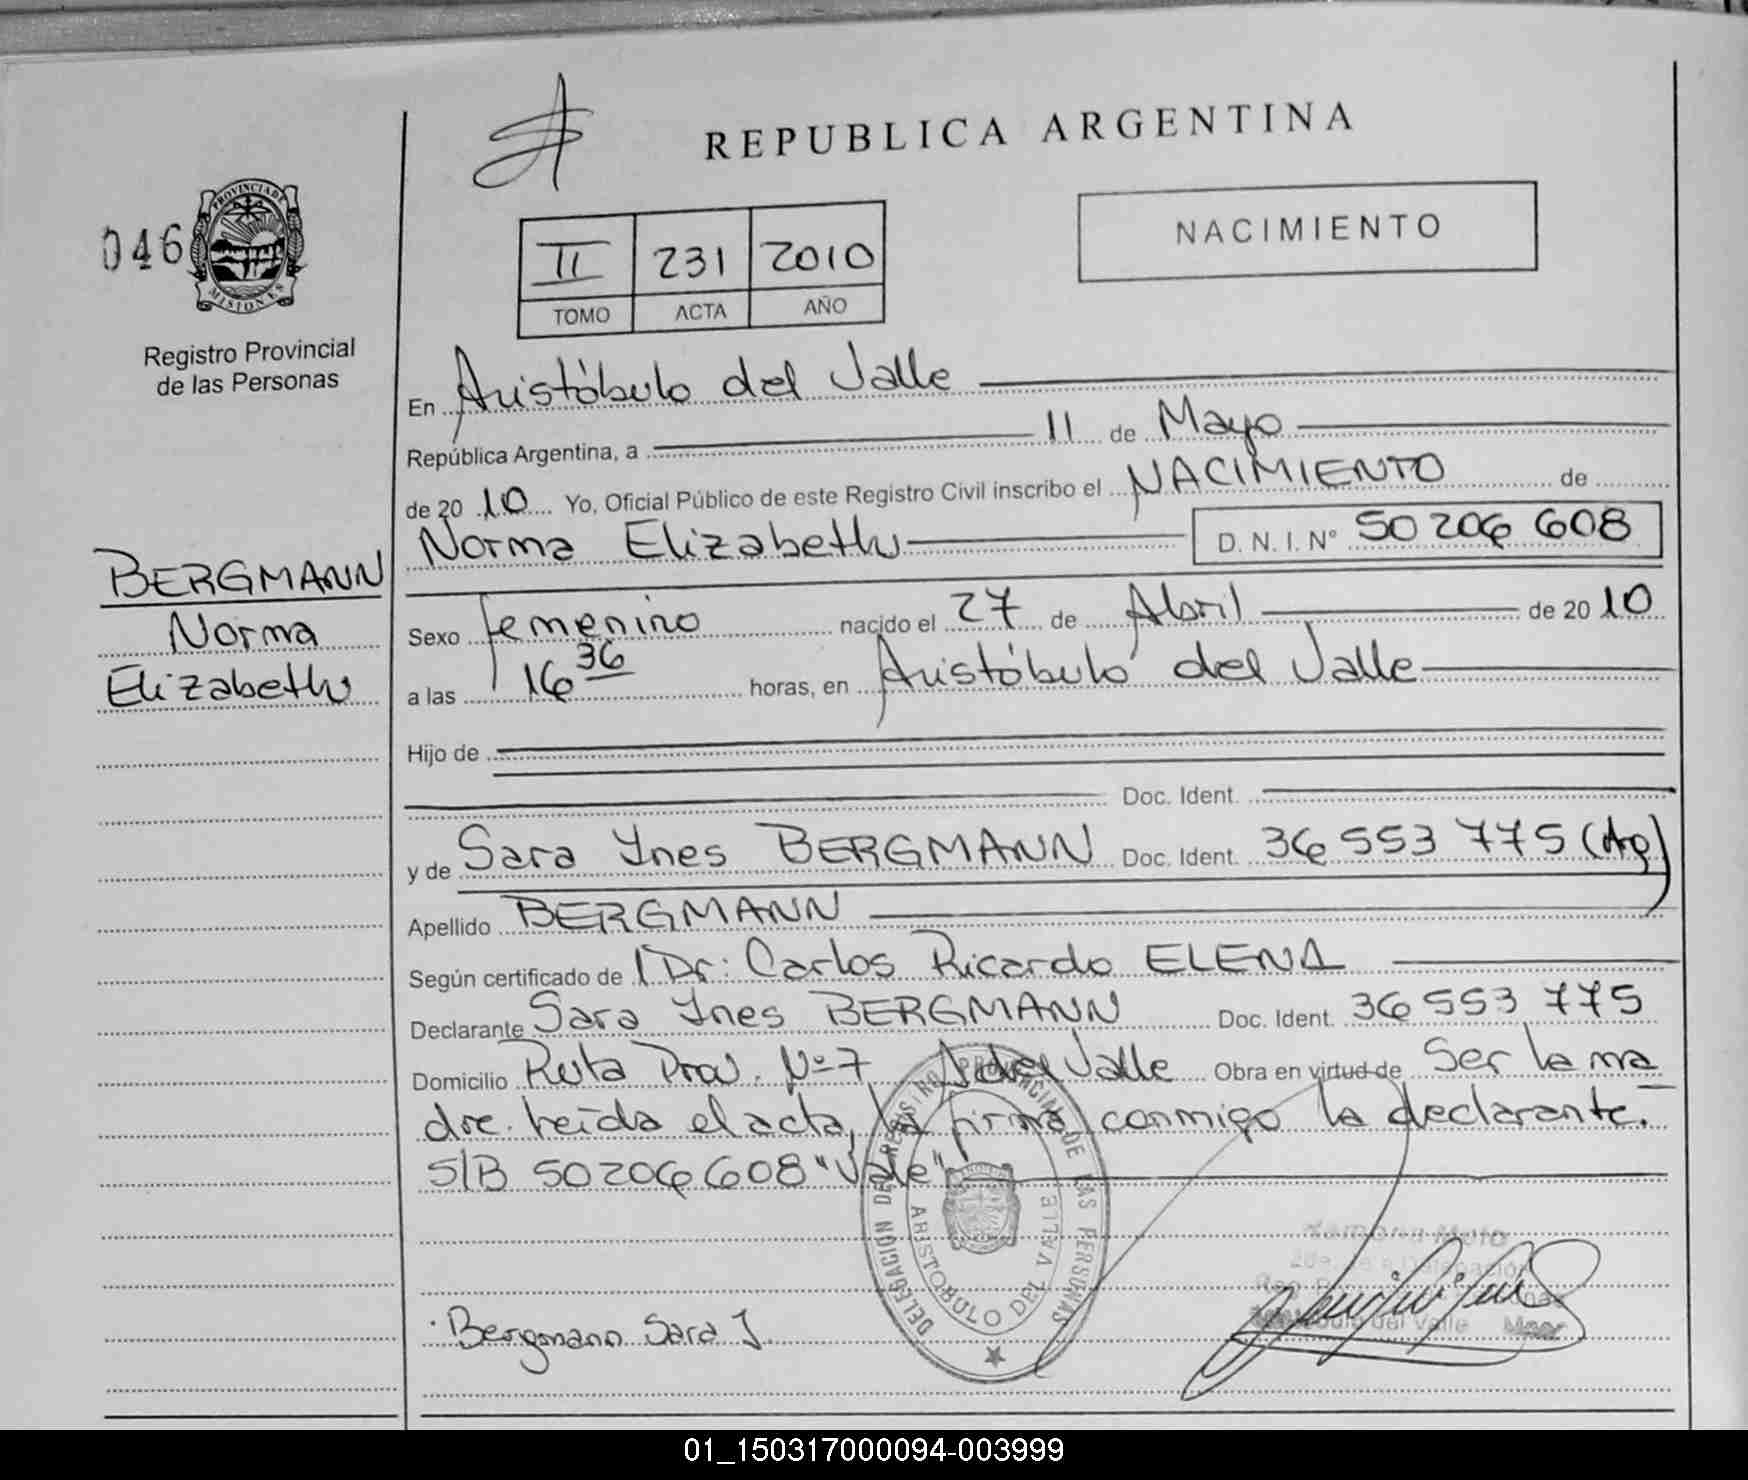 REPUBLICA ARGENTINA
046
PROVINCIA DE
MISIONES
Registro Provincial
de las Personas
II 231 2010
TOMO ACTA AÑO
NACIMIENTO
En Aristóbulo del Valle
República Argentina, a 11 de Mayo
de 20 10 Yo, Oficial Público de este Registro Civil inscribo el NACIMIENTO de
Norma Elizabeth D. N. I. Nº 50 206 608
BERGMANN
Norma
Elizabeth
Sexo femenino nacido el 27 de Abril de 20 10
a las 16 36 horas, en Aristóbulo del Valle
Hijo de
Doc. Ident.
y de Sara Ynes BERGMANN Doc. Ident. 36 553 775 (Arg)
Apellido BERGMANN
Según certificado de Dr. Carlos Ricardo ELENA
Declarante Sara Ynes BERGMANN Doc. Ident. 36 553 775
Domicilio Ruta Prov. Nº 7 A del Valle Obra en virtud de Ser la ma
dre. leída el acta, la firma conmigo la declarante.
S/B 50206608 "Vale"
DELEGACION DEL REGISTRO PROVINCIAL DE LAS PERSONAS
ARISTOBULO DEL VALLE
Bergmann Sara J.
del Valle
01_150317000094-003999